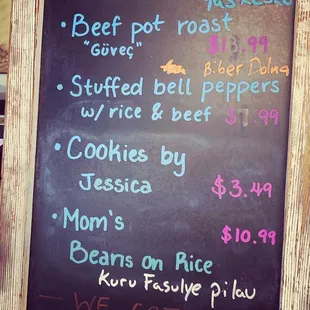 • Beef pot roast
"Güveç" $13.99
Biber Dolma
• Stuffed bell peppers
w/ rice & beef $7.99
• Cookies by
Jessica $3.49
• Mom's $10.99
Beans on Rice
Kuru Fasulye pilav
WE